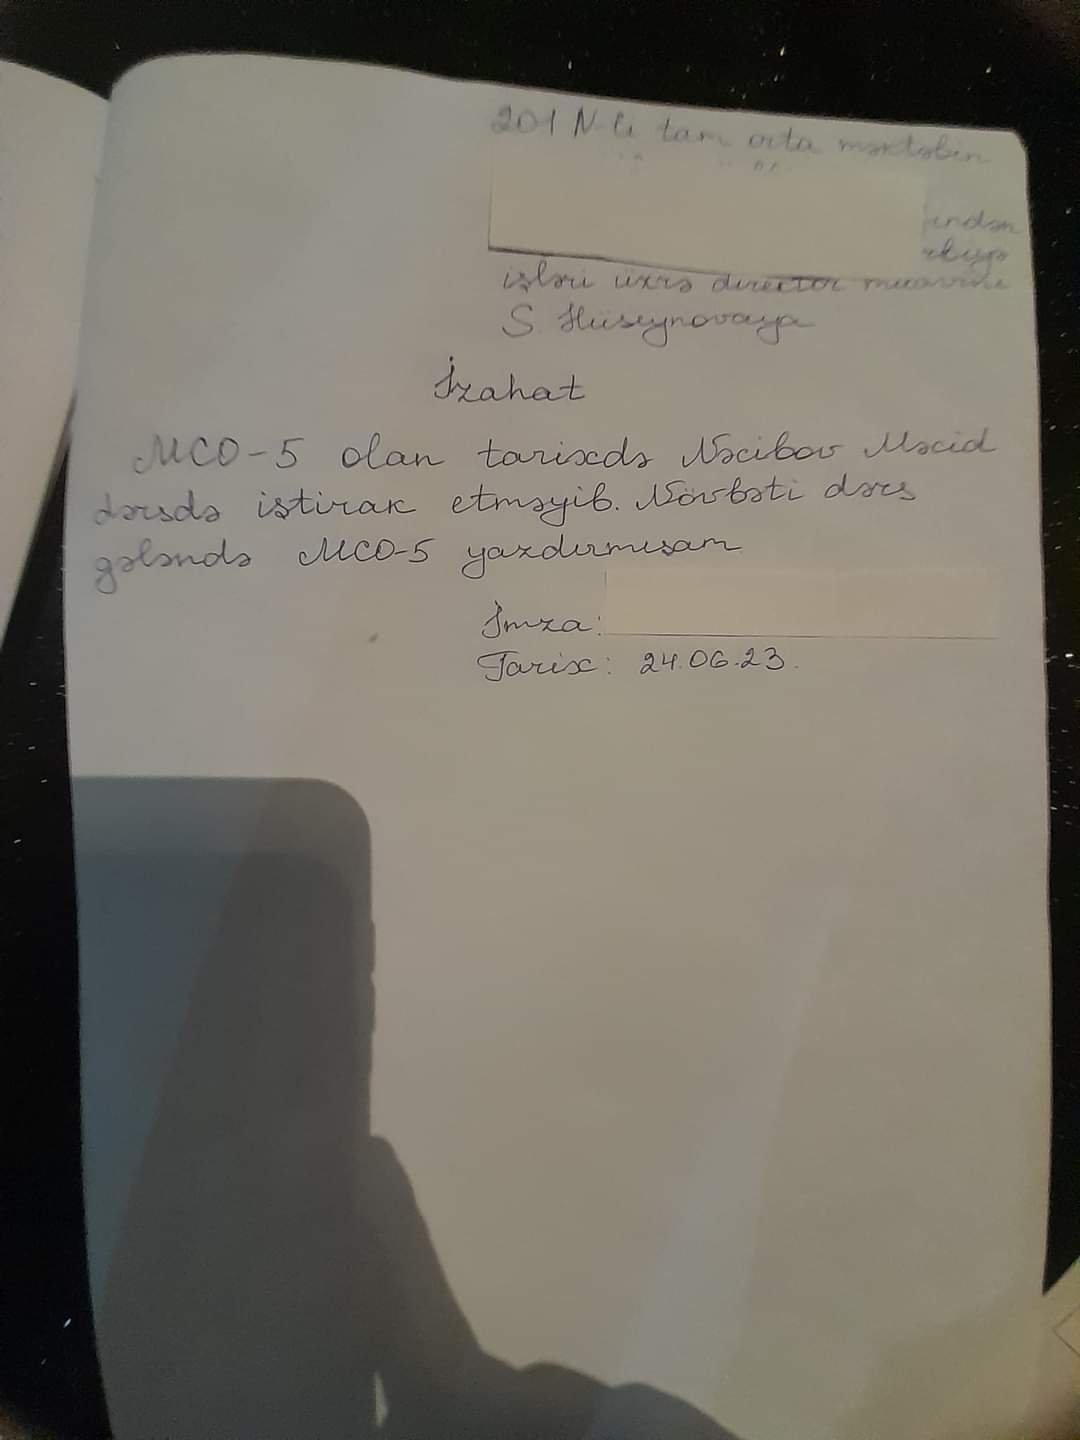 201 N-li tam orta məktəbin
işləri üzrə director müavini
S. Hüseynovaya
İzahat
MCO-5 olan tarixdə Nəcibov Məcid
dərsdə iştirak etməyib. Növbəti dərs
gələndə MCO-5 yazdırmışam
İmza:
Tarix: 24.06.23.